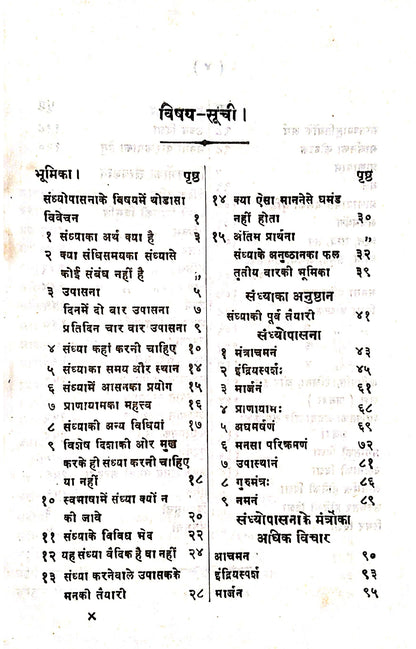 विषय-सूची।
भूमिका। पृष्ठ
संध्योपासनाके विषयमें थोडासा
विवेचन १
१ संध्याका अर्थ क्या है ३
२ क्या संधिसमयका संध्यासे
कोई संबंध नहीं है ,,
३ उपासना ५
दिनमें दो बार उपासना ७
प्रतिदिन चार बार उपासना ९
४ संध्या कहां करनी चाहिए १०
५ संध्याका समय और स्थान १४
६ संध्यामें आसनका प्रयोग १५
७ प्राणायामका महत्त्व १६
८ संध्याकी अन्य विधियां १७
९ विशेष दिशाकी ओर मुख
करके ही संध्या करनी चाहिए
या नहीं १८
१० स्वभाषामें संध्या क्यों न
की जावे २०
११ संध्याके विविध भेद २२
१२ यह संध्या वैदिक है वा नहीं २४
१३ संध्या करनेवाले उपासकके
मनकी तैयारी २८
×
पृष्ठ
१४ क्या ऐसा माननेसे घमंड
नहीं होता ३०
१५ अंतिम प्रार्थना ,,
संध्याके अनुष्ठानका फल ३२
तृतीय वारकी भूमिका ३९
संध्याका अनुष्ठान
संध्याकी पूर्व तैयारी ४१
संध्योपासना
१ मंत्राचमनं ४३
२ इंद्रियस्पर्शः ४५
३ मार्जनं ६१
४ प्राणायामः ६८
५ अघमर्षणं ६९
६ मनसा परिक्रमणं ७२
७ उपस्थानं ८१
८ गुरुमंत्रः ८६
९ नमनं ८९
संध्योपासनाके मंत्रोंका
अधिक विचार
आचमन ९०
इंद्रियस्पर्श ९३
मार्जन ९५